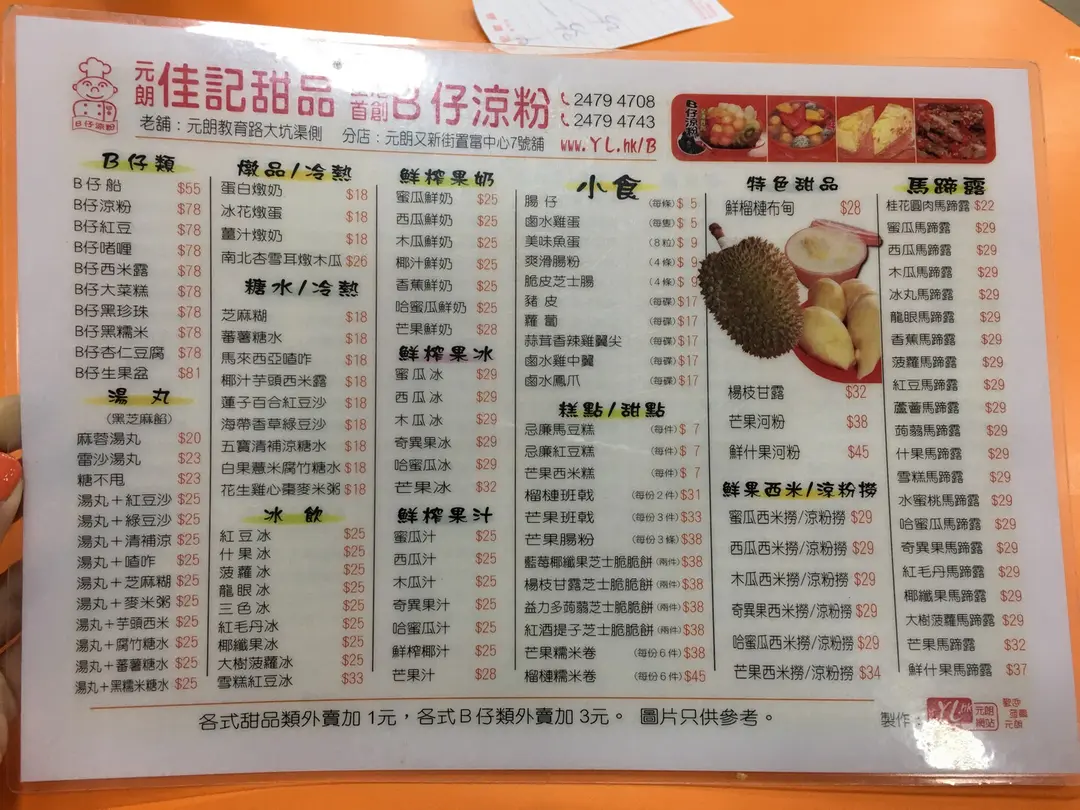 元朗 佳記甜品 首創 B仔涼粉 2479 4708
2479 4743
B仔涼粉
老舖：元朗教育路大坑渠側 分店：元朗又新街置富中心7號舖 www.YL.hk/B
B仔涼粉
B仔類
B仔船 $55
B仔涼粉 $78
B仔紅豆 $78
B仔啫喱 $78
B仔西米露 $78
B仔大菜糕 $78
B仔黑珍珠 $78
B仔黑糯米 $78
B仔杏仁豆腐 $78
B仔生果盆 $81
湯丸
(黑芝麻餡)
麻蓉湯丸 $20
雷沙湯丸 $23
糖不甩 $23
湯丸＋紅豆沙 $25
湯丸＋綠豆沙 $25
湯丸＋清補涼 $25
湯丸＋喳咋 $25
湯丸＋芝麻糊 $25
湯丸＋麥米粥 $25
湯丸＋芋頭西米 $25
湯丸＋腐竹糖水 $25
湯丸＋蕃薯糖水 $25
湯丸＋黑糯米糖水 $25
燉品/冷熱
蛋白燉奶 $18
冰花燉蛋 $18
薑汁燉奶 $18
南北杏雪耳燉木瓜 $26
糖水/冷熱
芝麻糊 $18
蕃薯糖水 $18
馬來西亞喳咋 $18
椰汁芋頭西米露 $18
蓮子百合紅豆沙 $18
海帶香草綠豆沙 $18
五寶清補涼糖水 $18
白果薏米腐竹糖水 $18
花生雞心棗麥米粥 $18
冰飲
紅豆冰 $25
什果冰 $25
菠蘿冰 $25
龍眼冰 $25
三色冰 $25
紅毛丹冰 $25
椰纖果冰 $25
大樹菠蘿冰 $25
雪糕紅豆冰 $33
鮮榨果奶
蜜瓜鮮奶 $25
西瓜鮮奶 $25
木瓜鮮奶 $25
椰汁鮮奶 $25
香蕉鮮奶 $25
哈蜜瓜鮮奶 $25
芒果鮮奶 $28
鮮榨果冰
蜜瓜冰 $29
西瓜冰 $29
木瓜冰 $29
奇異果冰 $29
哈蜜瓜冰 $29
芒果冰 $32
鮮榨果汁
蜜瓜汁 $25
西瓜汁 $25
木瓜汁 $25
奇異果汁 $25
哈蜜瓜汁 $25
鮮榨椰汁 $25
芒果汁 $28
小食
腸仔 (每條) $ 5
鹵水雞蛋 (每隻) $ 5
美味魚蛋 (8粒) $ 9
爽滑腸粉 (4條) $ 9
脆皮芝士腸 (4條) $ 9
豬皮 (每碟) $17
蘿蔔 (每碟) $17
蒜茸香辣雞翼尖 (每碟) $17
鹵水雞中翼 (每碟) $17
鹵水鳳爪 (每碟) $17
糕點/甜點
忌廉馬豆糕 (每件) $ 7
忌廉紅豆糕 (每件) $ 7
芒果西米糕 (每件) $ 7
榴槤班戟 (每份2件) $31
芒果班戟 (每份3件) $33
芒果腸粉 (每份3條) $38
藍莓椰纖果芝士脆脆餅 (兩件) $38
楊枝甘露芝士脆脆餅 (兩件) $38
益力多蒟蒻芝士脆脆餅 (兩件) $38
紅酒提子芝士脆脆餅 (兩件) $38
芒果糯米卷 (每份6件) $38
榴槤糯米卷 (每份6件) $45
特色甜品
鮮榴槤布甸 $28
楊枝甘露 $32
芒果河粉 $38
鮮什果河粉 $45
鮮果西米/涼粉撈
蜜瓜西米撈/涼粉撈 $29
西瓜西米撈/涼粉撈 $29
木瓜西米撈/涼粉撈 $29
奇異果西米撈/涼粉撈 $29
哈蜜瓜西米撈/涼粉撈 $29
芒果西米撈/涼粉撈 $34
馬蹄露
桂花圓肉馬蹄露 $22
蜜瓜馬蹄露 $29
西瓜馬蹄露 $29
木瓜馬蹄露 $29
冰丸馬蹄露 $29
龍眼馬蹄露 $29
香蕉馬蹄露 $29
菠蘿馬蹄露 $29
紅豆馬蹄露 $29
蘆薈馬蹄露 $29
蒟蒻馬蹄露 $29
什果馬蹄露 $29
雪糕馬蹄露 $29
水蜜桃馬蹄露 $29
哈蜜瓜馬蹄露 $29
奇異果馬蹄露 $29
紅毛丹馬蹄露 $29
椰纖果馬蹄露 $29
大樹菠蘿馬蹄露 $29
芒果馬蹄露 $32
鮮什果馬蹄露 $37
各式甜品類外賣加1元，各式B仔類外賣加3元。 圖片只供參考。
製作： YL.hk 元朗網站